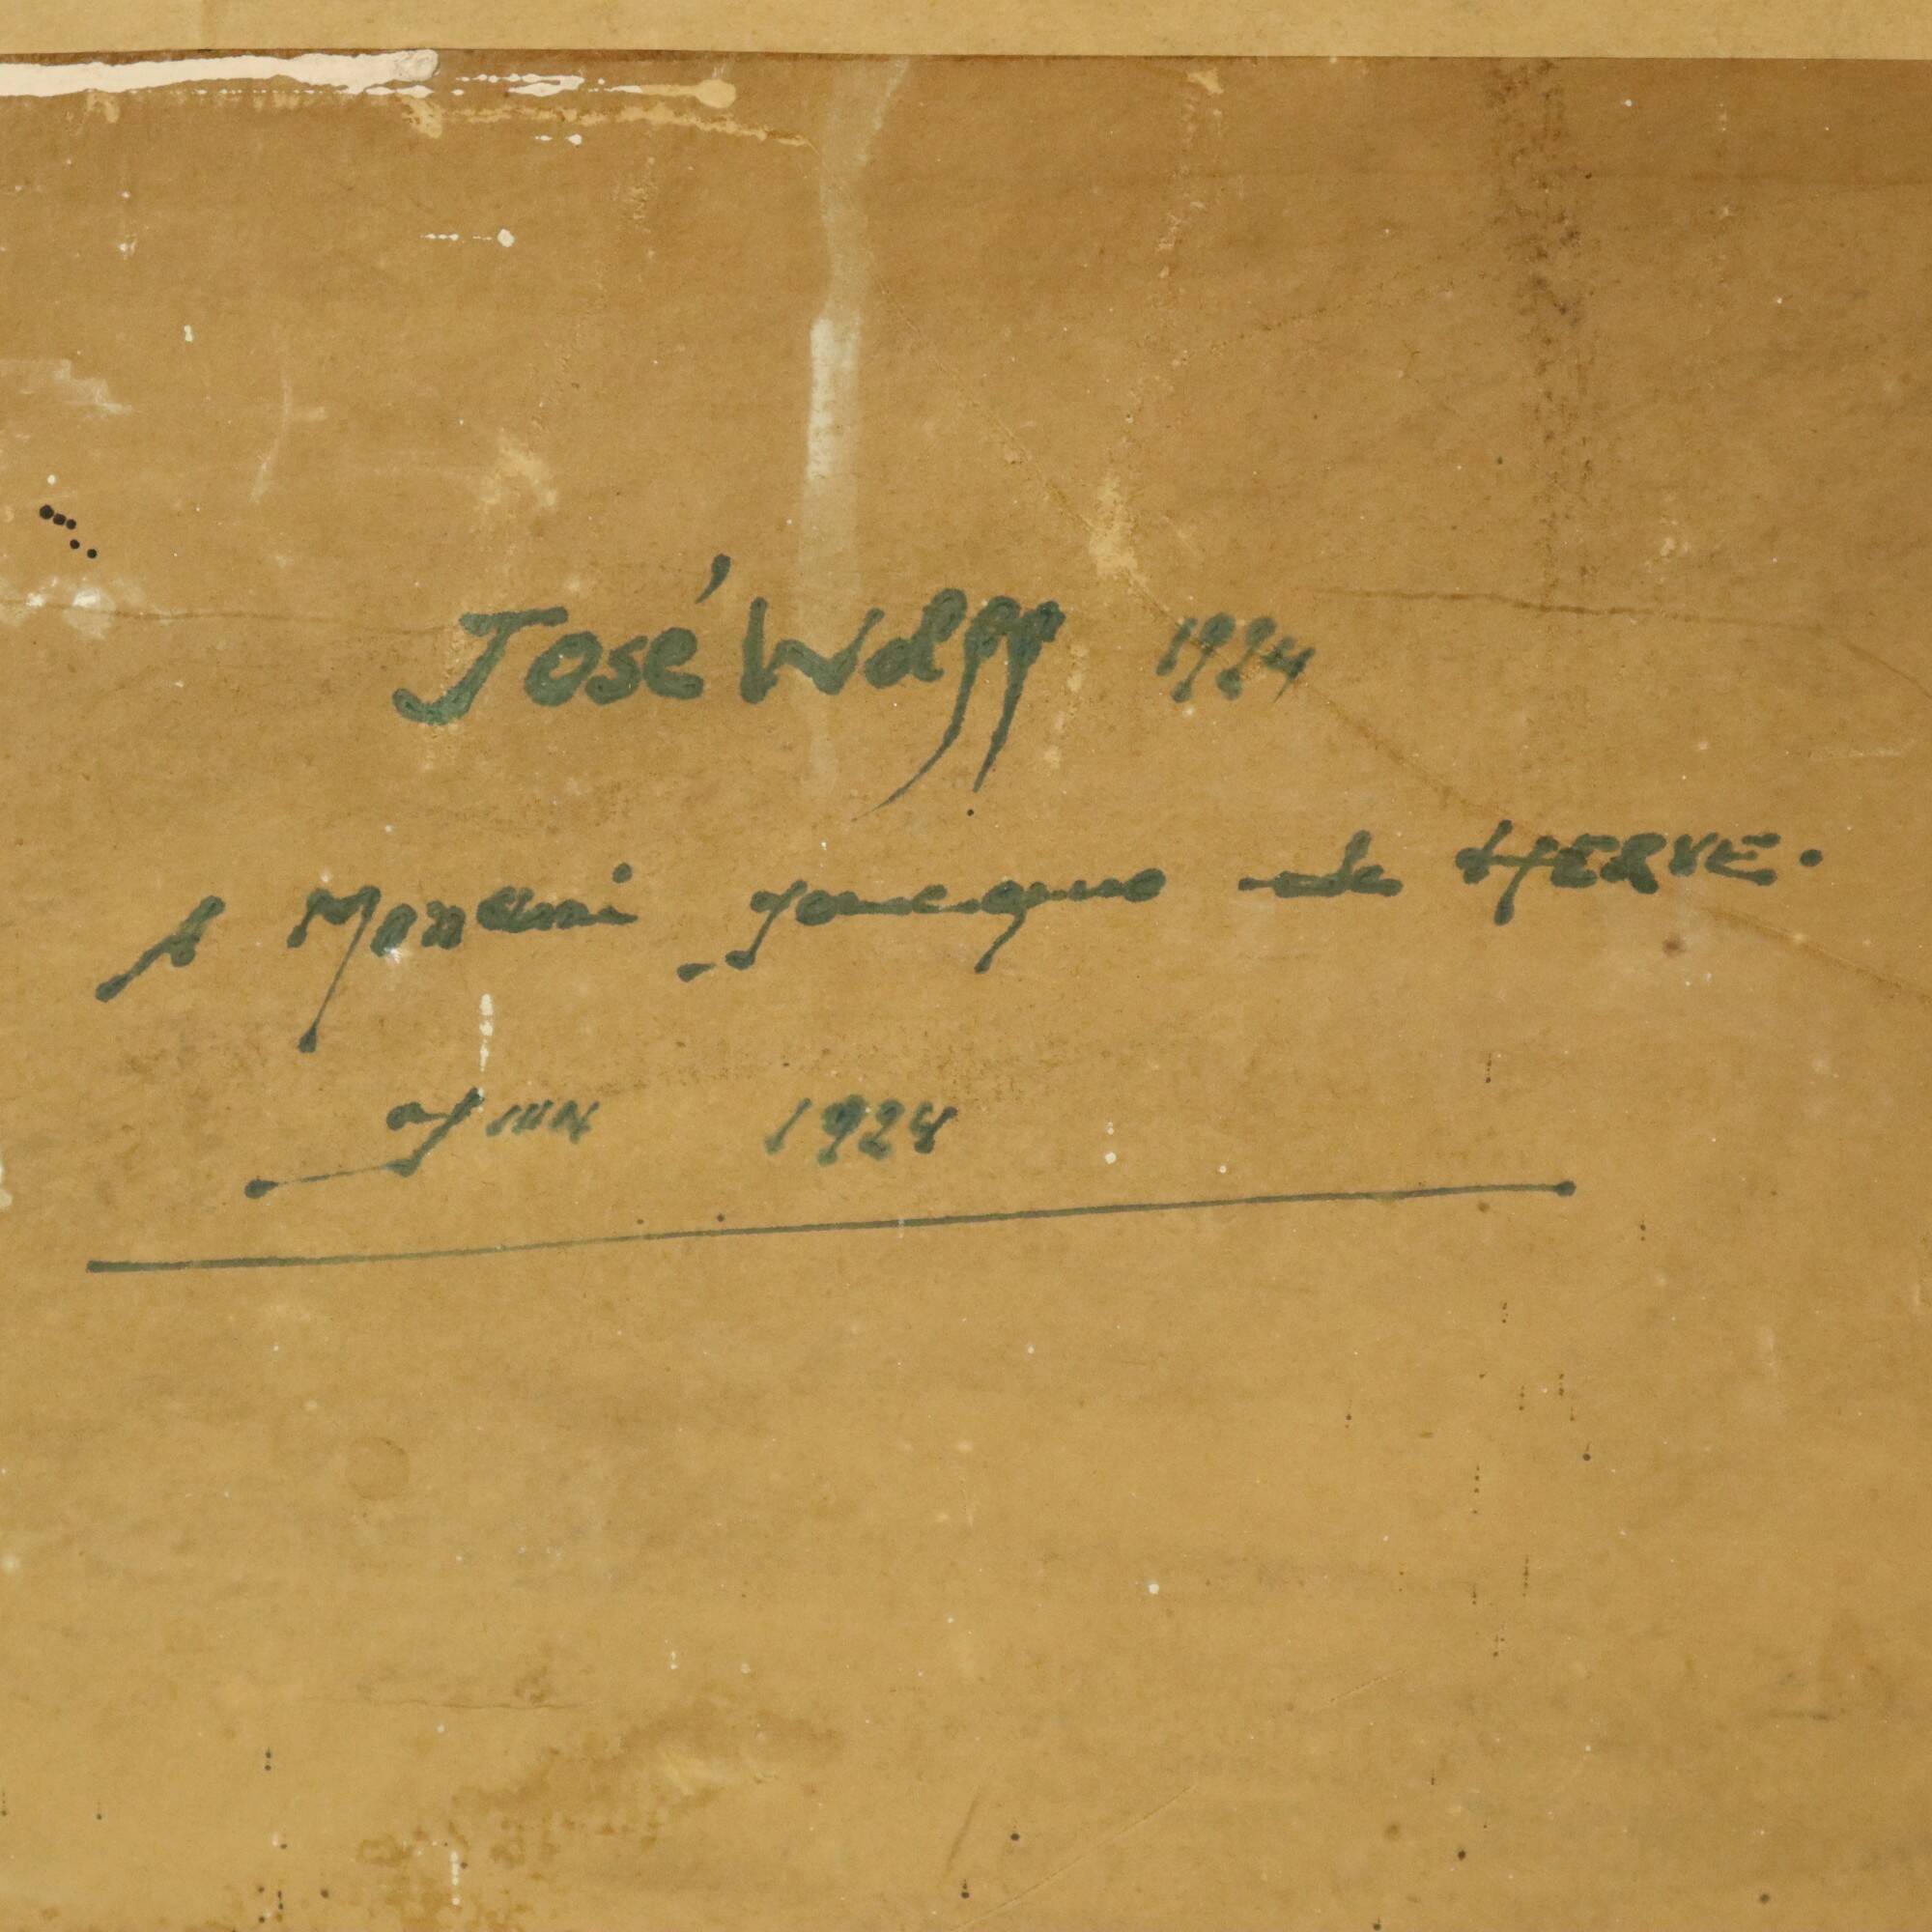 José Wolff 1924
A Jacques de HERVE.
Juin 1924